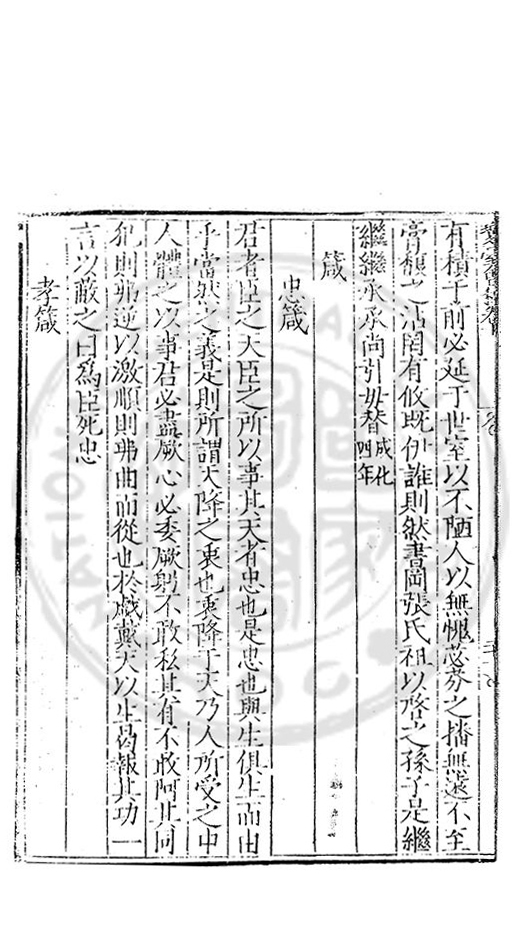 有積于前必延于世室以不陋人以無愧苾芬之播無遠不至
膏馥之沾閏有攸既伊誰則然書岡張氏祖以啓之孫子是繼
繼繼承承尚引毋替成化四年
箴
忠箴
君者臣之天臣之所以事其天者忠也是忠也與生俱生而由
乎當然之義是則所謂天降之衷也衷降于天乃人所受之中
人體之以事君必盡厥心必委厥躬不敢私其有不敢阿其同
犯則弗逆以激順則弗曲而從也於戲戴天以生曷報其功一
言以蔽之曰為臣死忠
孝箴